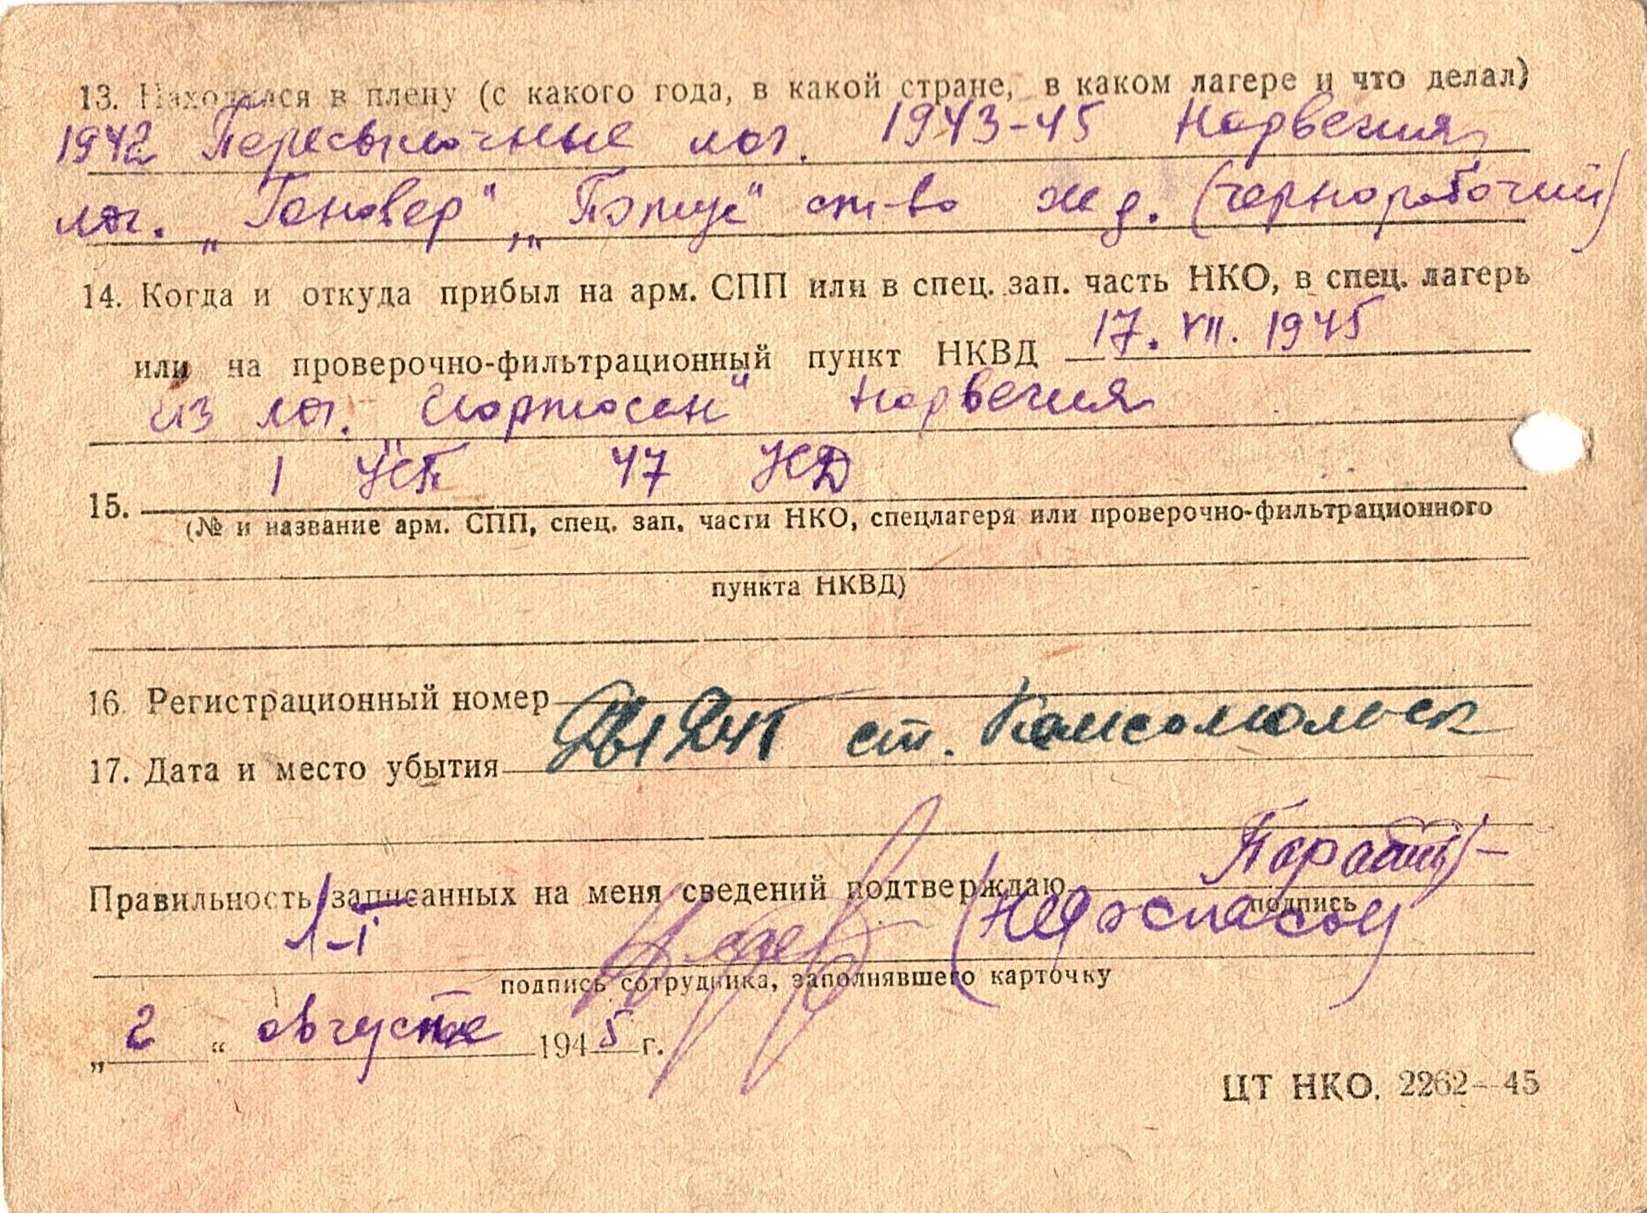 13. Находился в плену (с какого года, в какой стране, в каком лагере и что делал)
1942 Пересылочные лаг. 1943-45 Норвегия
лаг. „Гановер", „ ст-во жд. (чернорабочий)
14. Когда и откуда прибыл на арм. СПП или в спец. зап. часть НКО, в спец. лагерь
или на проверочно-фильтрационный пункт НКВД 17. VII. 1945
из лаг. Норвегия
15. 1 47
(№ и название арм. СПП, спец. зап. части НКО, спецлагеря или проверочно-фильтрационного
пункта НКВД)
16. Регистрационный номер
17. Дата и место убытия ст. Комсомольск
Правильность записанных на меня сведений подтверждаю
подпись
подпись сотрудника, заполнявшего карточку
„2" августа 1945 г.
ЦТ НКО. 2262—45